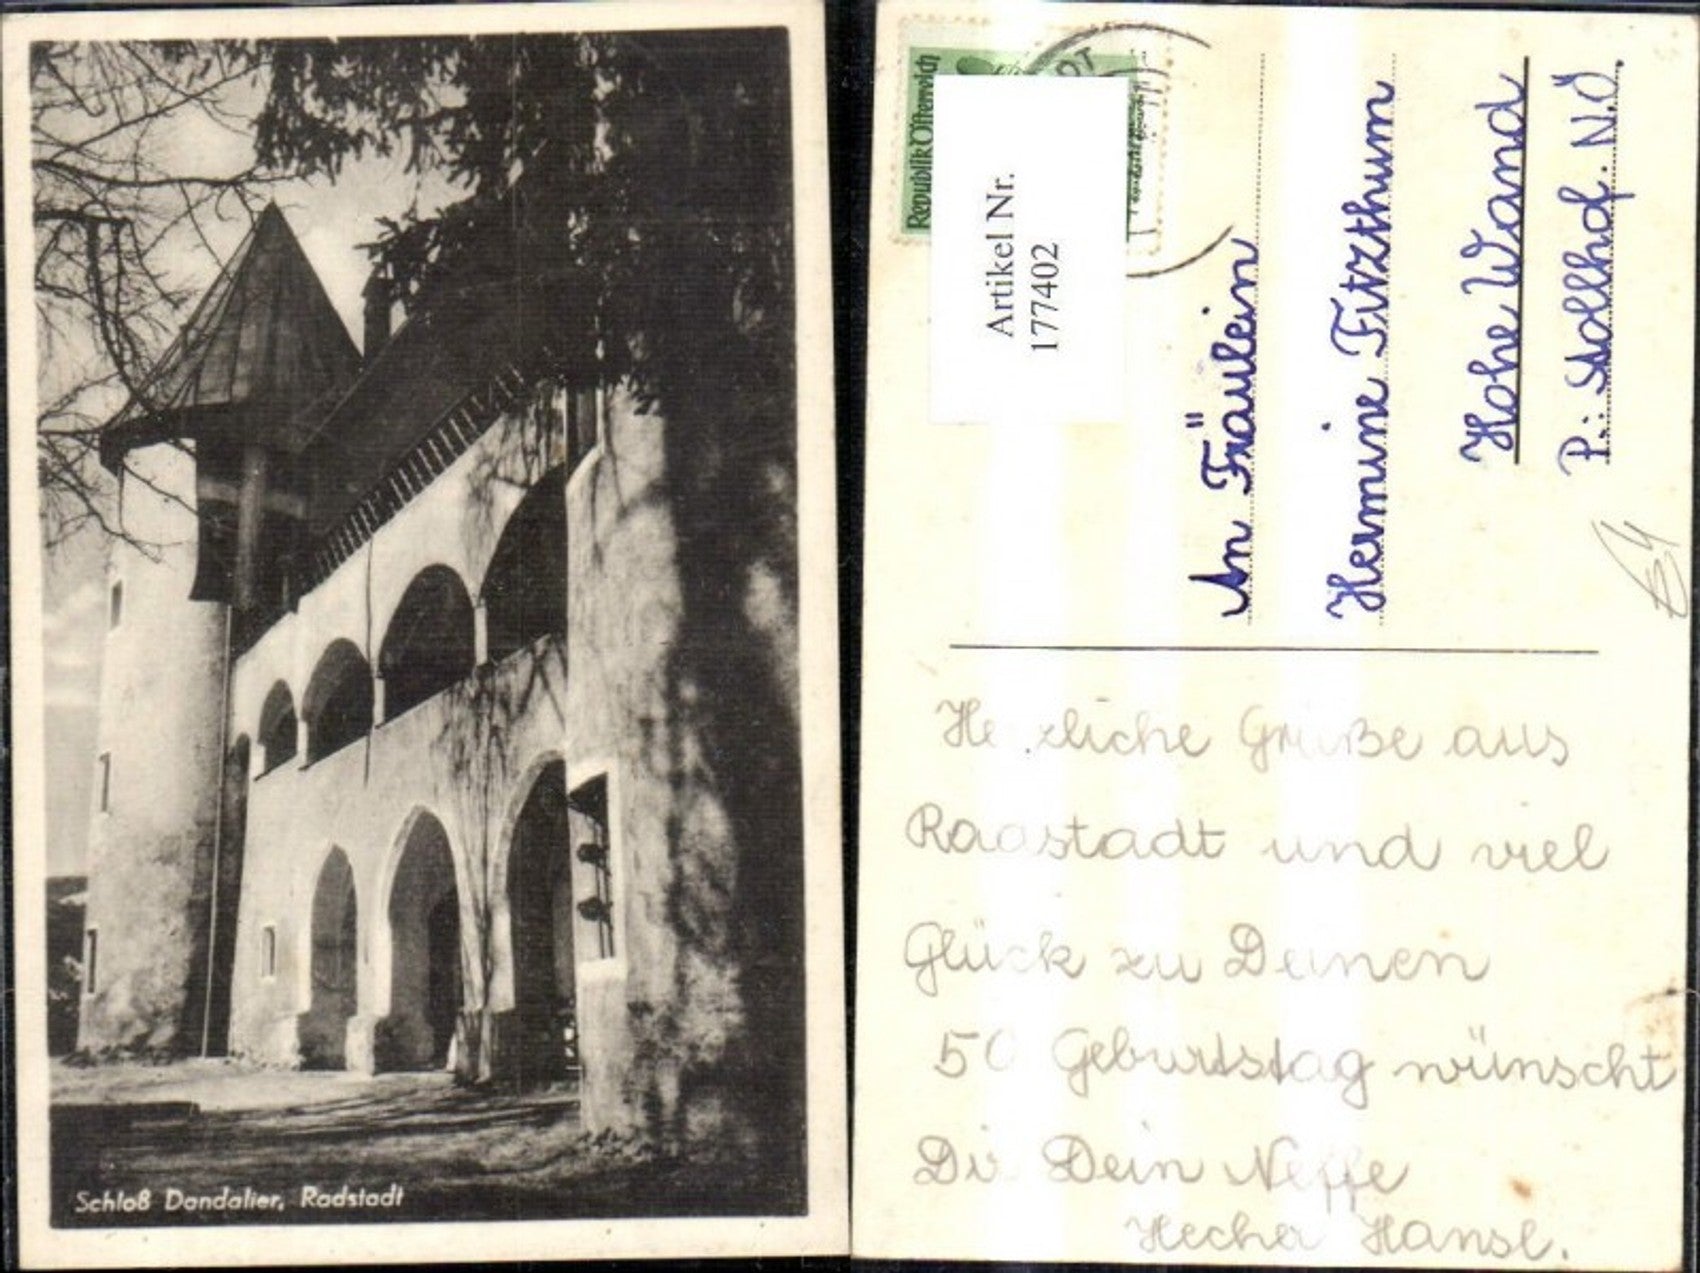 Schloß Dandalier, Radstadt
Republik Österreich
Artikel Nr.
177402
An Fräulein
Hermine Fitzthum
Hohe Wand
P.: Stollhof. N.Ö.
Herzliche Grüße aus
Raastadt und viel
Glück zu Deinen
50 Geburtstag wünscht
Dir Dein Neffe
Hecher Hansl.